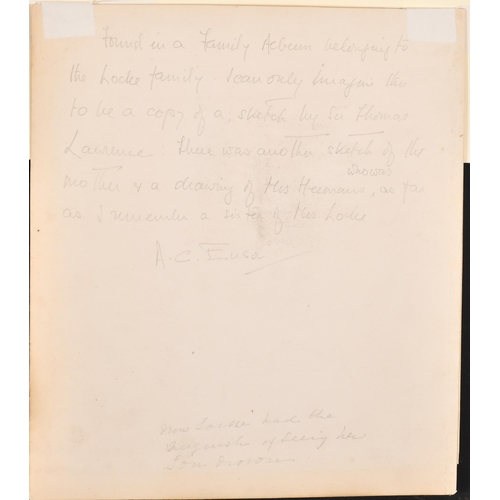 Found in a Family Album belonging to
the Locke family. I can only imagine this
to be a copy of a sketch by Sir Thomas
Lawrence. There was another sketch of the
mother & a drawing of Mrs who was, as far
as I remember a sister of Mrs Locke
A.C.
Mrs had the
of seeing her